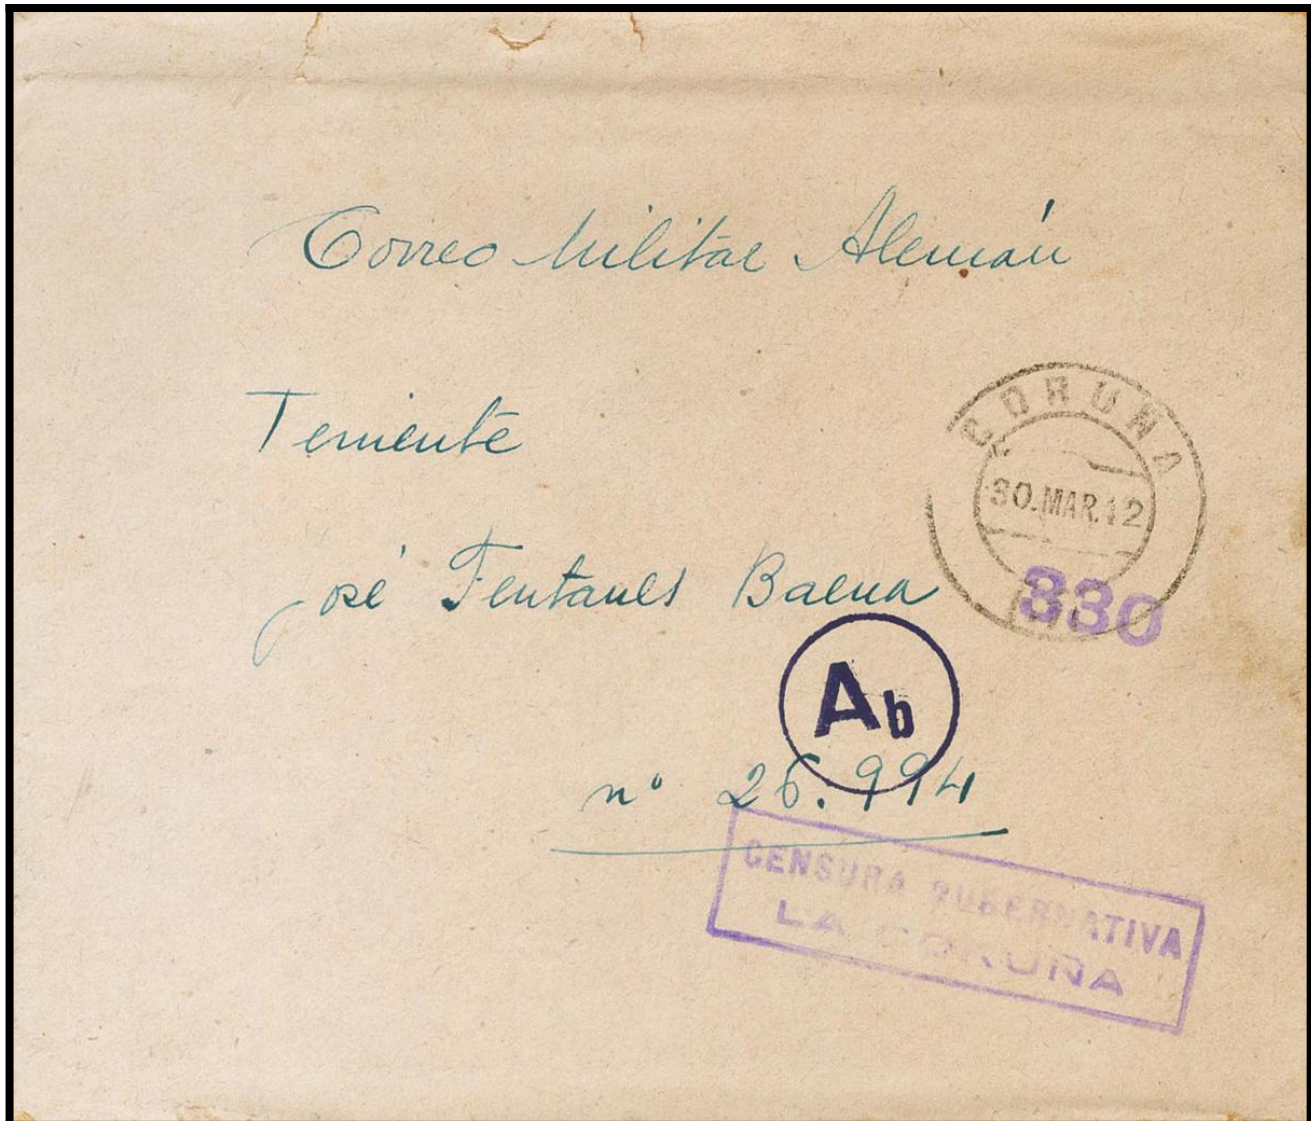 Correo Militar Alemán
Teniente
José Fentanes Baena
nº 26.994
CORUÑA
30.MAR.42
330
Ab
CENSURA GUBERNATIVA
LA CORUÑA